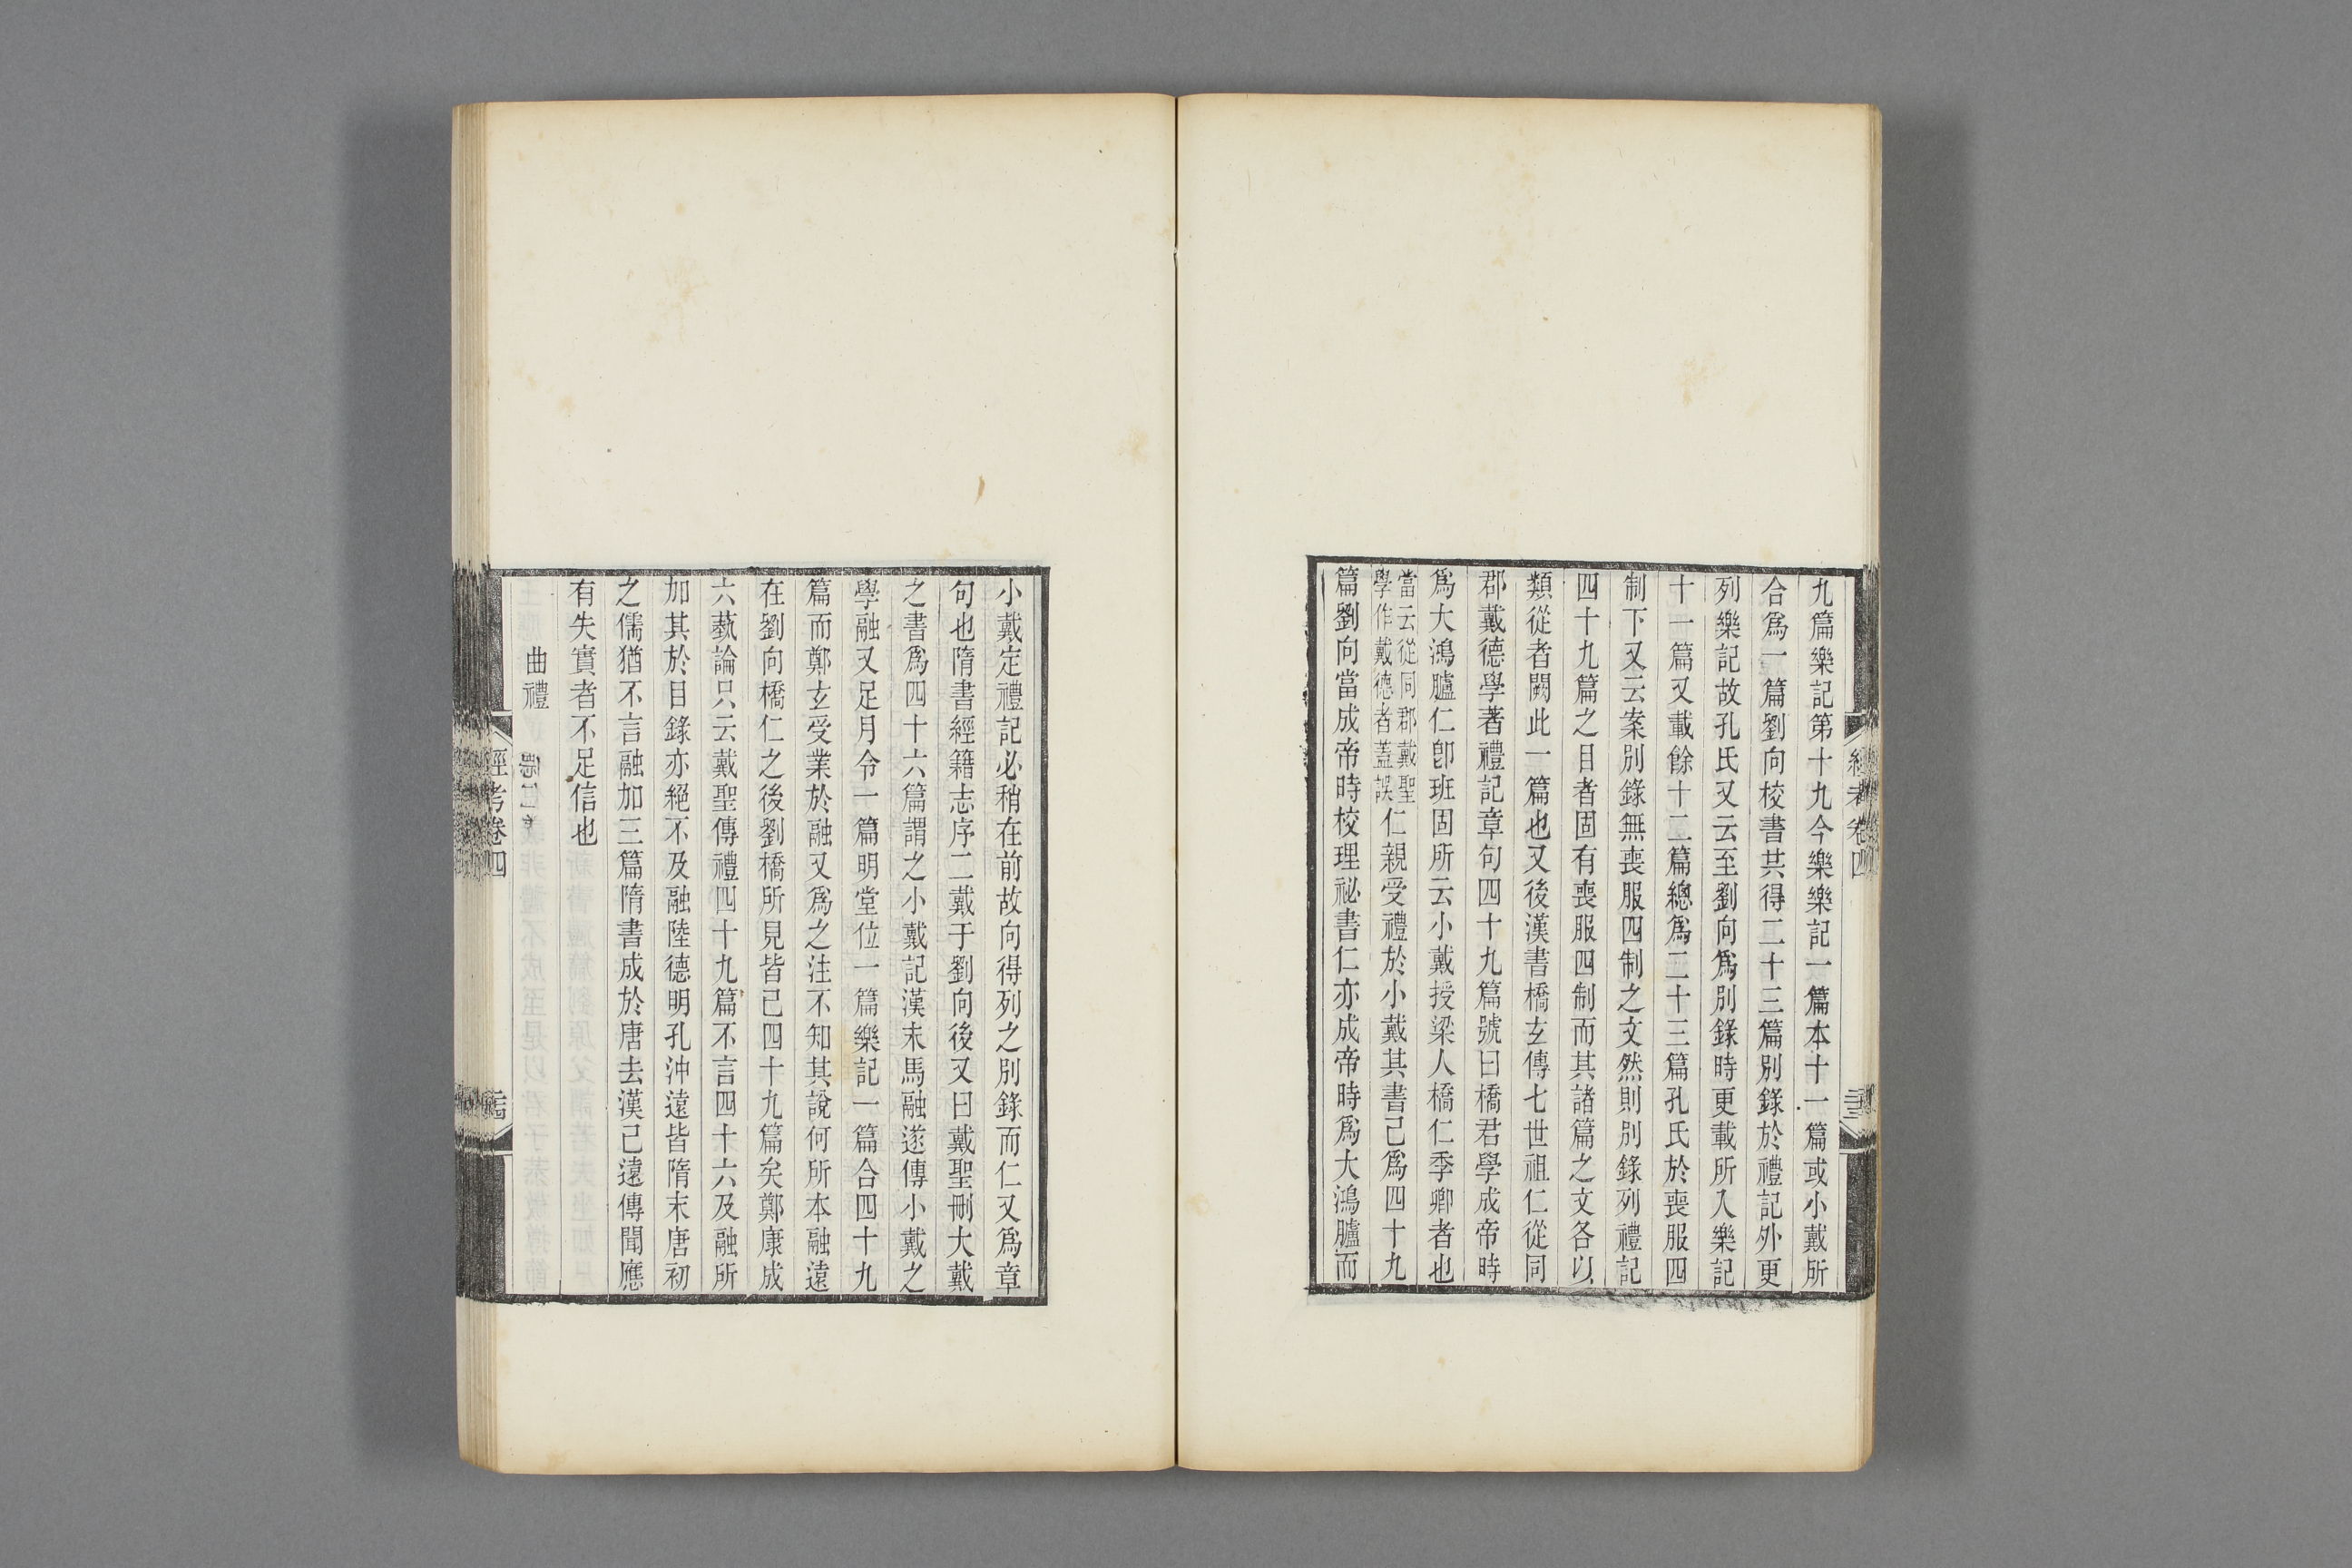 九篇樂記第十九今樂樂記一篇本十一篇或小戴所
合爲一篇劉向校書共得二十三篇別錄於禮記外更
列樂記故孔氏又云至劉向爲別錄時更載所入樂記
十一篇又載餘十二篇總爲二十三篇孔氏於喪服四
制下又云案別錄無喪服四制之文然則別錄列禮記
四十九篇之目者固有喪服四制而其諸篇之文各以
類從者闕此一篇也又後漢書橋玄傳七世祖仁從同
郡戴德學著禮記章句四十九篇號曰橋君學成帝時
爲大鴻臚仁卽班固所云小戴授梁人橋仁季卿者也
當云從同郡戴聖
學作戴德者蓋誤
仁親受禮於小戴其書已爲四十九
篇劉向當成帝時校理祕書仁亦成帝時爲大鴻臚而
經考卷四
小戴定禮記必稍在前故向得列之別錄而仁又爲章
句也隋書經籍志序二戴于劉向後又曰戴聖刪大戴
之書爲四十六篇謂之小戴記漢末馬融遂傳小戴之
學融又足月令一篇明堂位一篇樂記一篇合四十九
篇而鄭玄受業於融又爲之注不知其說何所本融遠
在劉向橋仁之後劉橋所見皆已四十九篇矣鄭康成
六藝論只云戴聖傳禮四十九篇不言四十六及融所
加其於目錄亦絕不及融陸德明孔沖遠皆隋末唐初
之儒猶不言融加三篇隋書成於唐去漢已遠傳聞應
有失實者不足信也
曲禮
經考卷四